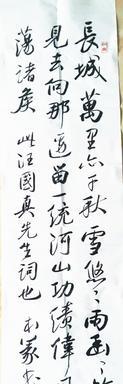 長城萬里六千秋雪悠悠雨幽幽
見去向那邊留一統河山功績偉
蕩諸侯 此汪國真先生詞也